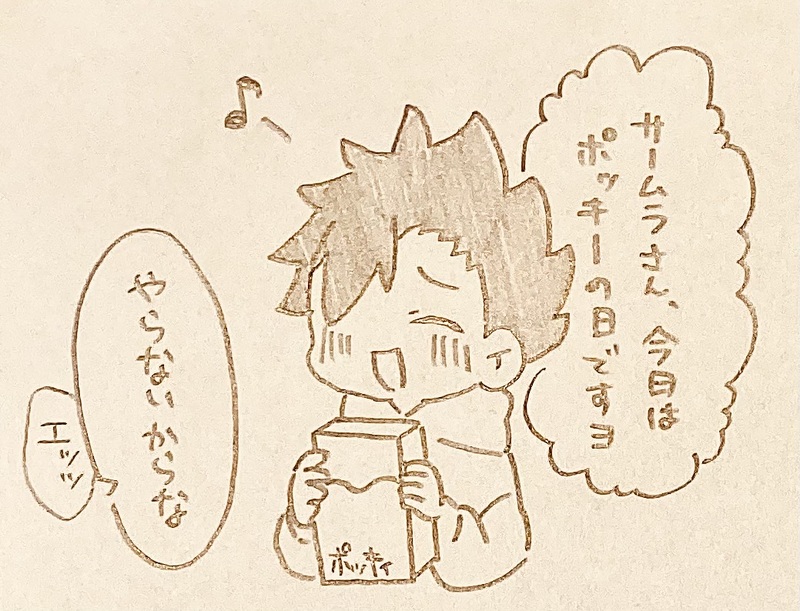 サームラさん、今日は
ポッキーの日ですョ
やらないからな
エッッ
ポッキィ